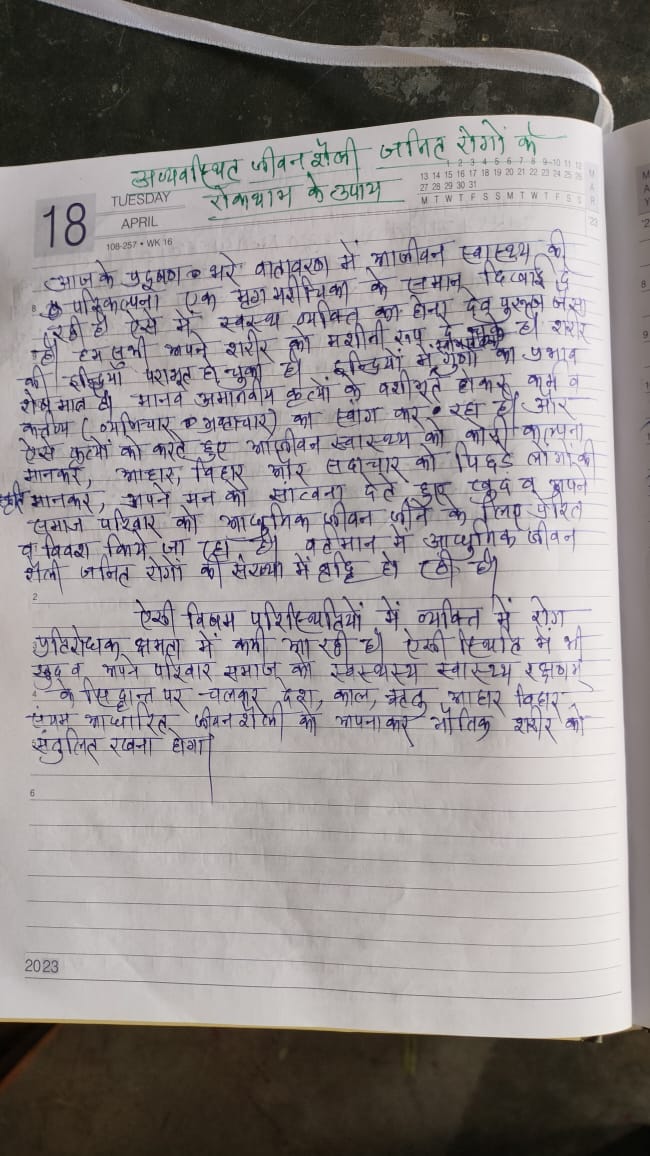 अव्यवस्थित जीवन शैली जनित रोगों के
रोकथाम के उपाय
18
TUESDAY
APRIL
108-257 • WK 16
1 2 3 4 5 6 7 8 9 10 11 12
13 14 15 16 17 18 19 20 21 22 23 24 25 26
27 28 29 30 31
M T W T F S S M T W T F S S
M
A
R
'23
आज के प्रदूषण भरे वातावरण में आजीवन स्वास्थ्य की
परिकल्पना एक मृग मरीचिका के समान दिखाई दे
रही है। ऐसे में स्वस्थ व्यक्ति का होना देव पुरूष जैसा
है। हम सभी अपने शरीर को मशीनी रूप दे चुके है। शरीर
की इन्द्रियां पराभूत हो चुकी है। इन्द्रियों में गुणों का प्रभाव
शेष मात्र है। मानव अमानवीय कृत्यों के वशीभूत होकर कर्म व
कर्तव्य (व्यभिचार भ्रष्टाचार) का स्वांग कर रहा है। और
ऐसे कृत्यों को करते हुए आजीवन स्वास्थ्य को कोरी कल्पना
मानकर, आहार, विहार और सदाचार को पिछडे लोगों की
मानकर, अपने मन को सांत्वना देते हुए खुद व अपने
समाज परिवार को आधुनिक जीवन जीने के लिए प्रेरित
व विवश किये जा रहा है। वर्तमान में आधुनिक जीवन
शैली जनित रोगों की संख्या में वृद्धि हो रही है।
2
ऐसी विषम परिस्थितियों में व्यक्ति में रोग
प्रतिरोधक क्षमता में कमी आ रही है। ऐसी स्थिति में भी
खुद व अपने परिवार समाज को स्वस्थस्य स्वास्थ्य रक्षणम्
4 के सिद्धान्त पर चलकर देश, काल, आहार विहार
संयम आधारित जीवन शैली को अपनाकर भौतिक शरीर को
संतुलित रखना होगा।
6
2023